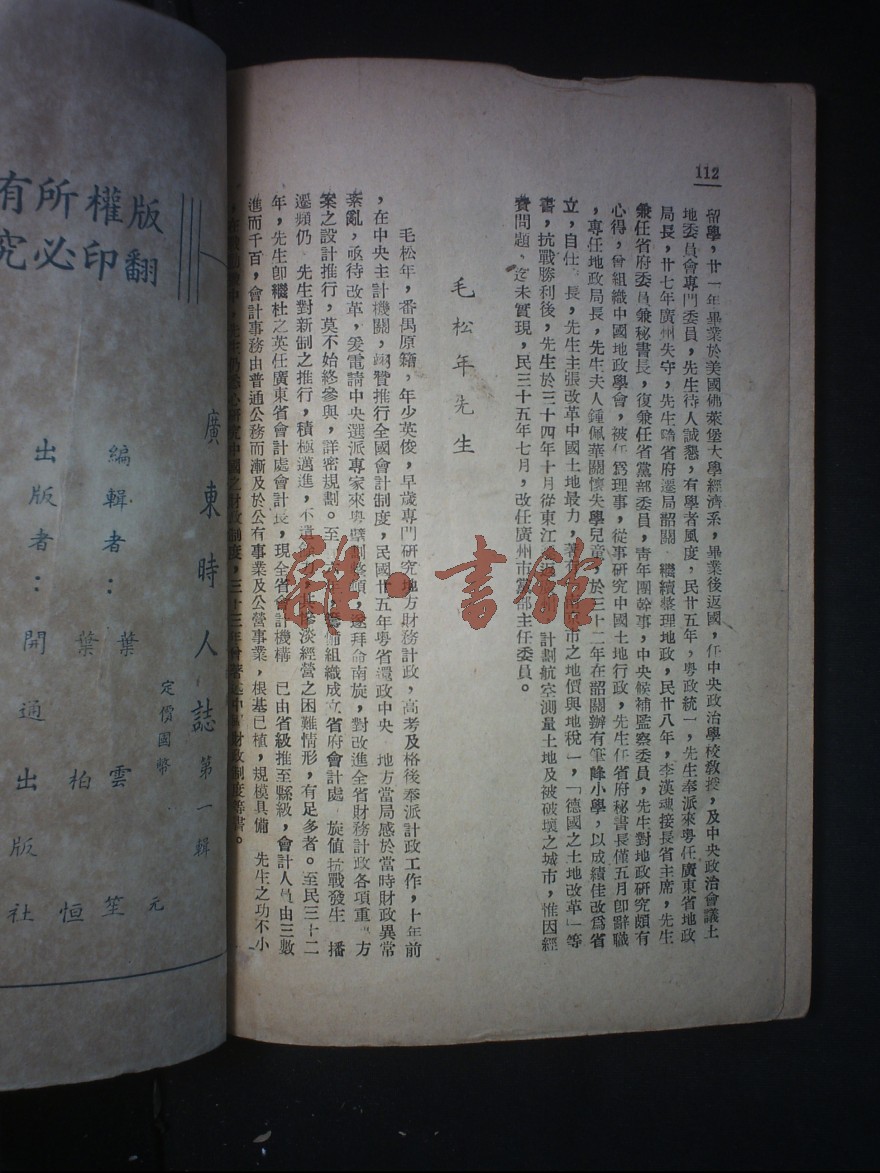 112
留學，廿一年畢業於美國佛萊堡大學經濟系，畢業後返國，任中央政治學校教授，及中央政治會議土
地委員會專門委員，先生待人誠懇，有學者風度，民廿五年，粵政統一，先生奉派來粵任廣東省地政
局長，廿七年廣州失守，先生隨省府遷局韶關 繼續整理地政，民廿八年，李漢魂接長省主席，先生
兼任省府委員兼秘書長，復兼任省黨部委員，青年團幹事，中央候補監察委員，先生對地政研究頗有
心得，曾組織中國地政學會，被任為理事，從事研究中國土地行政，先生任省府秘書長僅五月卽辭職
，專任地政局長，先生夫人鍾佩華關懷失學兒童，於三十二年在韶關辦有筆峰小學，以成績佳改爲省
立，自任 長，先生主張改革中國土地最力，著有 市之地價與地稅」，「德國之土地改革」等
書，抗戰勝利後，先生於三十四年十月從東江 計劃航空測量土地及被破壞之城市，惟因經
費問題，迄未實現，民三十五年七月，改任廣州市黨部主任委員。
毛松年先生
毛松年，番禺原籍，年少英俊，早歲專門研究地方財務計政，高考及格後奉派計政工作，十年前
，在中央主計機關，翊贊推行全國會計制度，民國廿五年粵省還政中央 地方當局感於當時財政異常
紊亂，亟待改革，爰電請中央選派專家來粵 ，遂拜命南旋，對改進全省財務計政各項重 方
案之設計推行，莫不始終參與，詳密規劃。至 備組織成立省府會計處 旋值抗戰發生 播
遷頻仍 先生對新制之推行，積極邁進，不遺 淡經營之困難情形，有足多者。至民三十二
年，先生卽繼杜之英任廣東省會計處會計長，現全省會計機構 已由省級推至縣級，會計人員由三數
進而千百，會計事務由普通公務而漸及於公有事業及公營事業，根基已植，規模具備 先生之功不小
，在 中，先生仍悉心研究中國之財政制度，三十三年曾著 財政制度等書。
有所權版
究必印翻
廣東時人誌 第一輯
定價國幣 元
編輯者：葉雲笙
葉柏恒
出版者：開通出版社
雜·書館